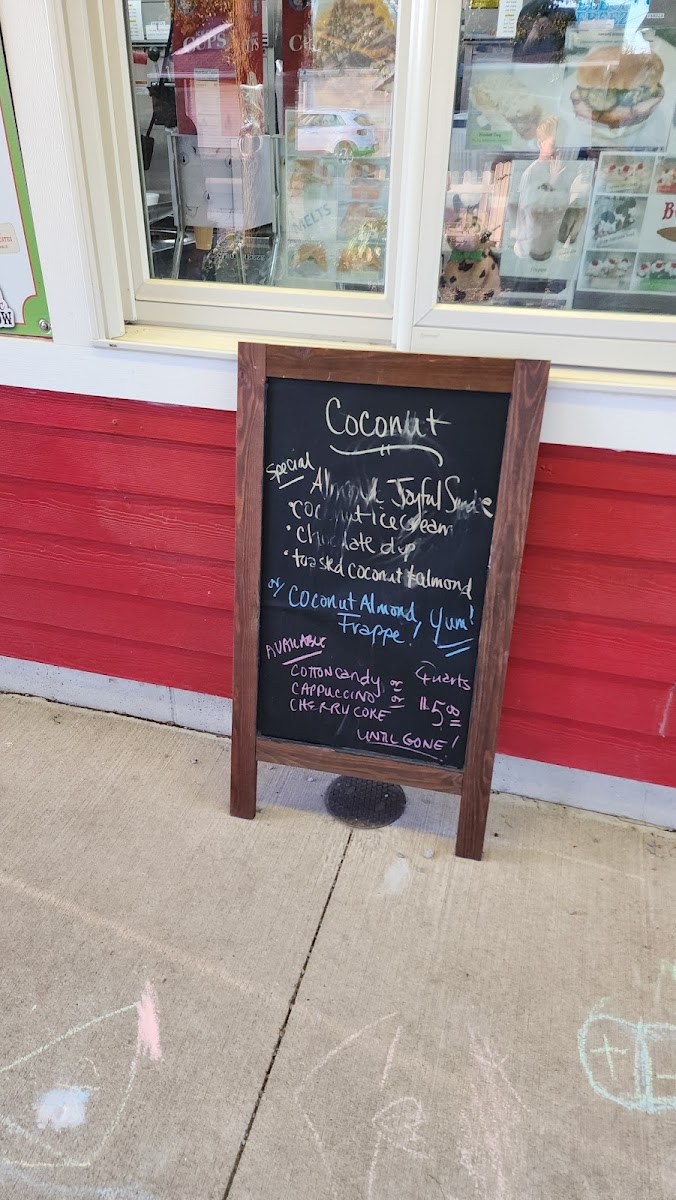 CUPS
MELTS
Coconut
Special
Almond Joyful Sundae
• coconut ice cream
• chocolate dip
• toasted coconut & almond
or/ Coconut Almond, Yum!
Frappe!
AVAILABLE
COTTON CANDY or Quarts
CAPPUCCINO or $5.00
CHERRY COKE
UNTIL GONE!